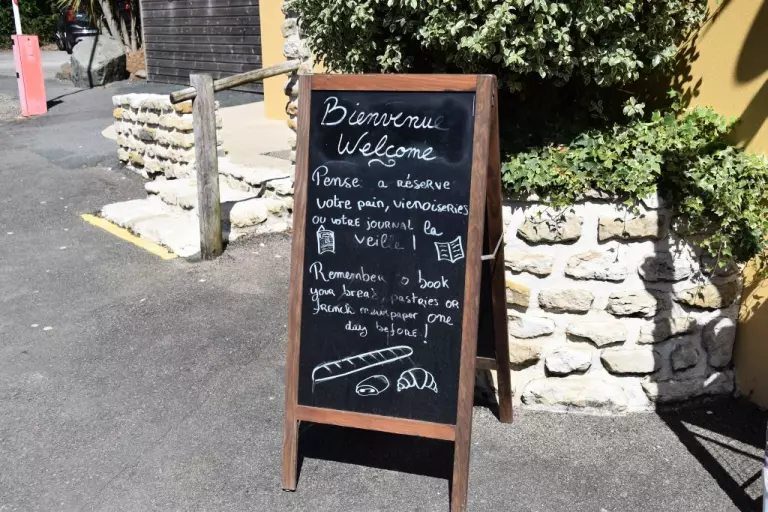 Bienvenue
Welcome
Pense a réservé
votre pain, vienoiseries
ou votre journal la
veille !
Remember to book
your bread, pastries or
french newspaper one
day before !